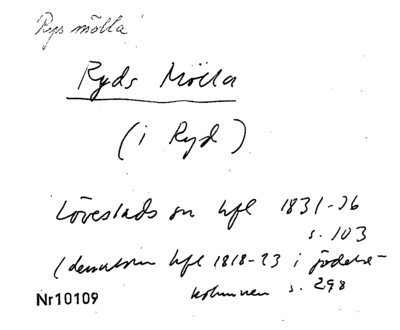 Rys mölla
Ryds Mölla
(i Ryd)
Lövestads sn hfl 1831-36
s. 103
(dessutom hfl 1818-23 i födelse-
kolumnen s. 298
Nr10109